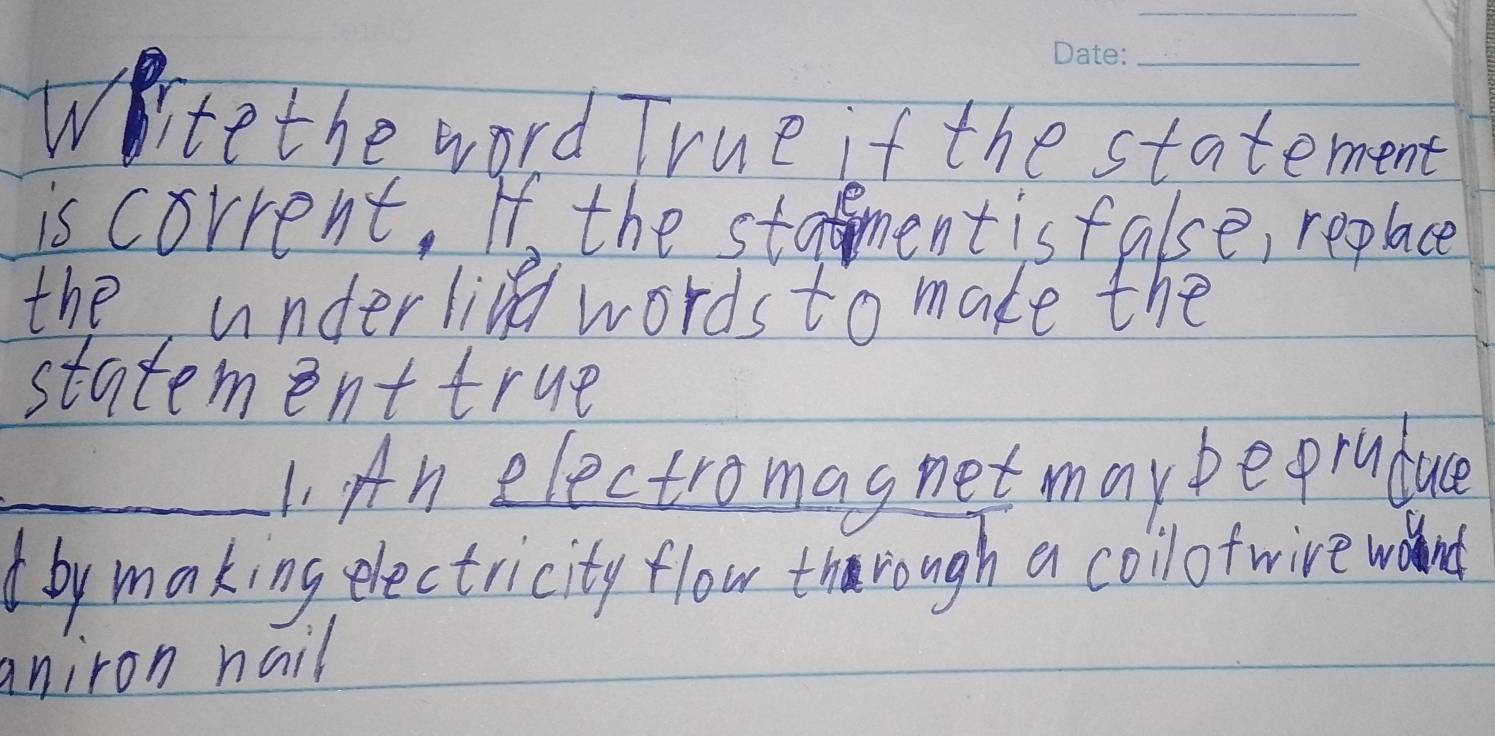 Date:
Write the word True if the statement
is corrent. If the statement is false, replace
the underlined words to make the
statement true
1. An electromagnet may be pruduce
d by making electricity flow through a coil of wire wound
an iron nail